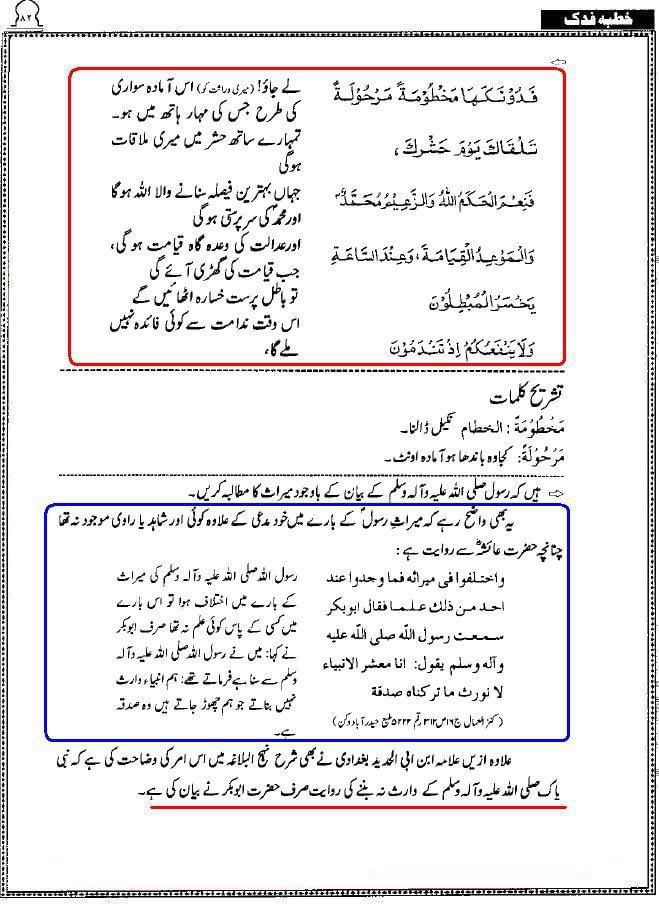 خطبہ فدک
۸۲
فَدُوْنَكَهَا مَخْطُوْمَةً مَرْحُوْلَةً
تَلْقَاكَ يَوْمَ حَشْرِكَ،
فَنِعْمَ الْحَكَمُ اللهُ وَالزَّعِيْمُ مُحَمَّدٌ
وَالْمَوْعِدُ الْقِيَامَةَ، وَعِنْدَ السَّاعَةِ
يَخْسَرُ الْمُبْطِلُوْنَ
وَلَا يَنْفَعُكُمْ اِذْ تَنْدَمُوْنَ
لے جاؤ! (میری وراثت کو) اس آمادہ سواری
کی طرح جس کی مہار ہاتھ میں ہو۔
تمہارے ساتھ حشر میں میری ملاقات
ہوگی
جہاں بہترین فیصلہ سنانے والا اللہ ہوگا
اور محمدؐ کی سرپرستی ہوگی
اور عدالت کی وعدہ گاہ قیامت ہوگی،
جب قیامت کی گھڑی آئے گی
تو باطل پرست خسارہ اٹھائیں گے
اس وقت ندامت سے کوئی فائدہ نہیں
ملے گا،
تشریح کلمات
مَخْطُوْمَةً : الخطام نکیل ڈالنا۔
مَرْحُوْلَةً: کجاوہ باندھا ہوا آمادہ اونٹ۔
ہیں کہ رسول صلی اللہ علیہ وآلہ وسلم کے بیان کے باوجود میراث کا مطالبہ کریں۔
یہ بھی واضح رہے کہ میراث رسولؐ کے بارے میں خود مدعی کے علاوہ کوئی اور شاہد یا راوی موجود نہ تھا
چنانچہ حضرت عائشہؓ سے روایت ہے:
واختلفوا فی میراثه فما وجدوا عند
احد من ذلك علما فقال ابوبكر
سمعت رسول الله صلى الله عليه
وآله وسلم يقول: انا معشر الانبياء
لا نورث ما تركناه صدقة
(کنز العمال ج ۱۶ ص ۳۱۲ رقم ۵۲۲۲ طبع حیدرآباد دکن)
رسول اللہ صلی اللہ علیہ وآلہ وسلم کی میراث
کے بارے میں اختلاف ہوا تو اس بارے
میں کسی کے پاس کوئی علم نہ تھا صرف ابوبکر
نے کہا: میں نے رسول اللہ صلی اللہ علیہ وآلہ
وسلم سے سنا ہے فرماتے تھے: ہم انبیاء وارث
نہیں بناتے جو ہم چھوڑ جاتے ہیں وہ صدقہ
ہے۔
علاوہ ازیں علامہ ابن ابی الحدید بغدادی نے بھی شرح نہج البلاغہ میں اس امر کی وضاحت کی ہے کہ نبی
پاک صلی اللہ علیہ وآلہ وسلم کے وارث نہ بننے کی روایت صرف حضرت ابوبکر نے بیان کی ہے۔